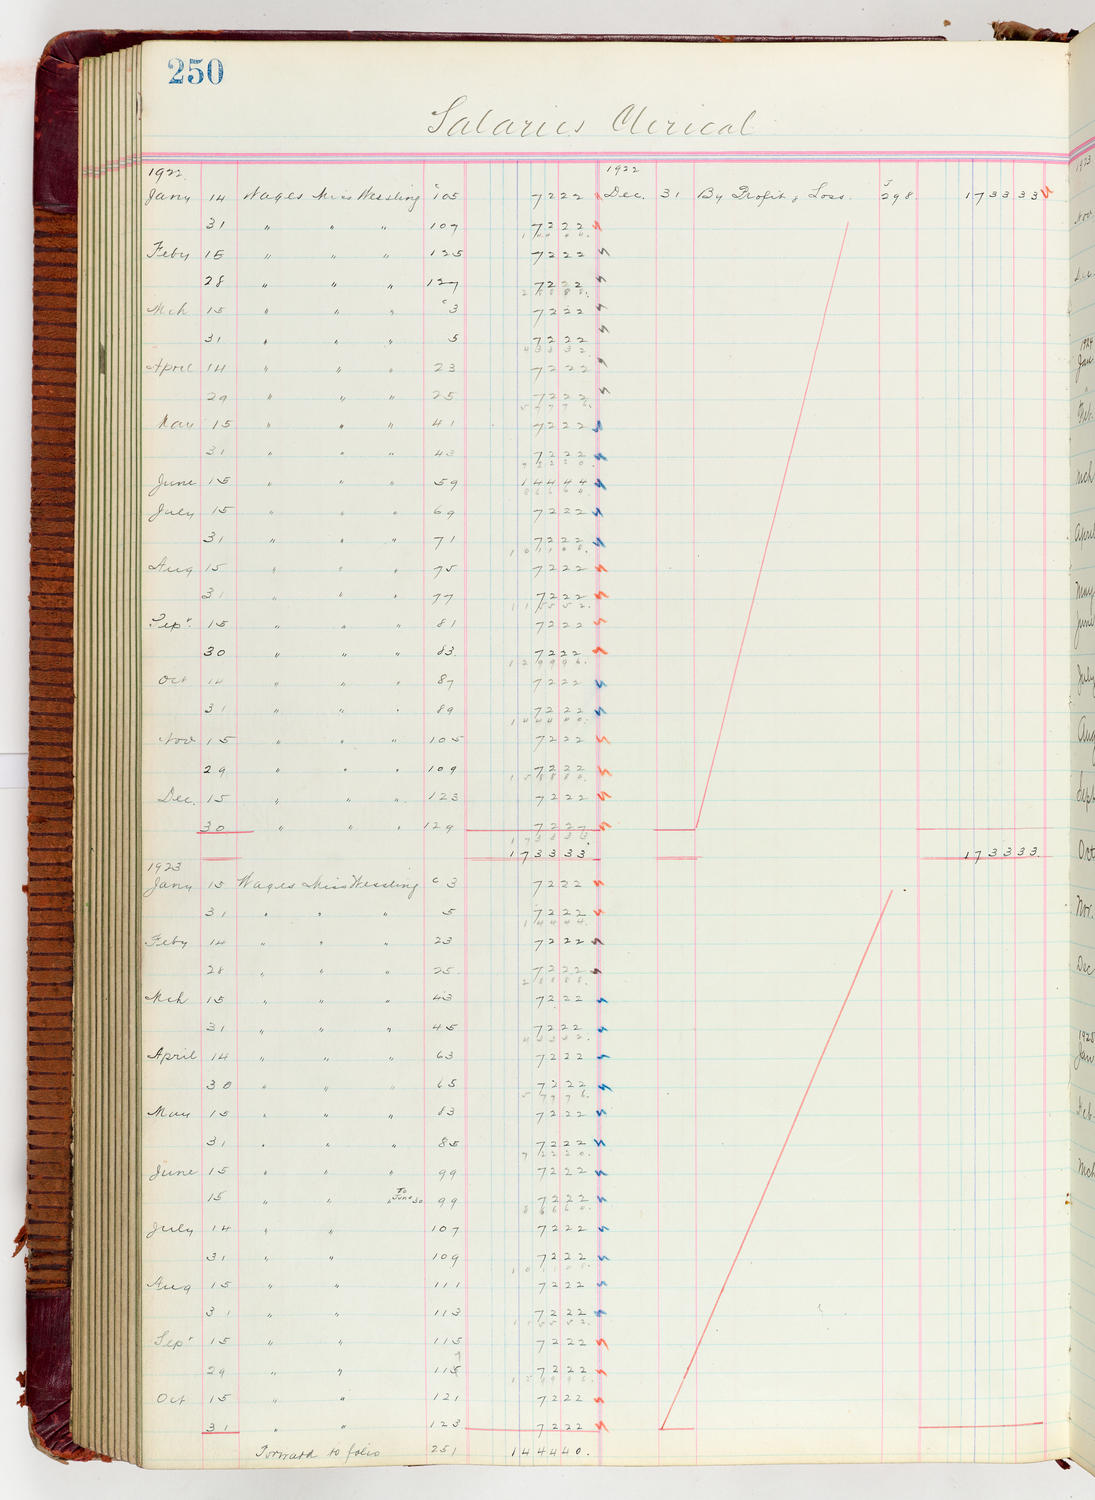 250
Salaries Clerical
1922 1922
Jany 14 Wages Miss Wessling c 105 7222 Dec. 31 By Profit & Loss. J 298. 173333
31 " " " 107 7222
14444.
Feby 15 " " " 125 7222
28 " " " 127 7222
28888.
Mch 15 " " " c 3 7222
31 " " " 5 7222
43332
April 14 " " " 23 7222
29 " " " 25 7222
57776.
May 15 " " " 41 7222
31 " " " 43 7222
72220.
June 15 " " " 59 14444
86664.
July 15 " " " 69 7222
31 " " " 71 7222
101108.
Aug 15 " " " 75 7222
31 " " " 77 7222
115552.
Sepr. 15 " " " 81 7222
30 " " " 83. 7222
129996.
Oct 14 " " " 87 7222
31 " " " 89 7222
144440.
Nov 15 " " " 105 7222
29 " " " 109 7222
158880.
Dec. 15 " " " 123 7222
30 " " " 129 7227
173333.
173333. 173333.
1923
Jany 15 Wages Miss Wessling c 3 7222
31 " " " 5 7222
14444.
Feby 14 " " " 23 7222
28 " " " 25. 7222
28888.
Mch 15 " " " 43 7222
31 " " " 45 7222
43332.
April 14 " " " 63 7222
30 " " " 65 7222
57776.
May 15 " " " 83 7222
31 " " " 85 7222
72220.
June 15 " " " 99 7222
15 " " " To June 30 99 7222
86660.
July 14 " " 107 7222
31 " " 109 7222
Aug 15 " " 111 7222
31 " " 113 7222
115552.
Sepr 15 " " 115 7222
29 " " 115 7222
Oct 15 " " 121 7222
31 " " 123 7222
Forward to folio 251 144440.
1923
Nov
1924
Jan
Feb.
Mch
April
May
June
July
Aug
Sept
Oct
Nov.
Dec
1925
Jan
Feb.
Mch